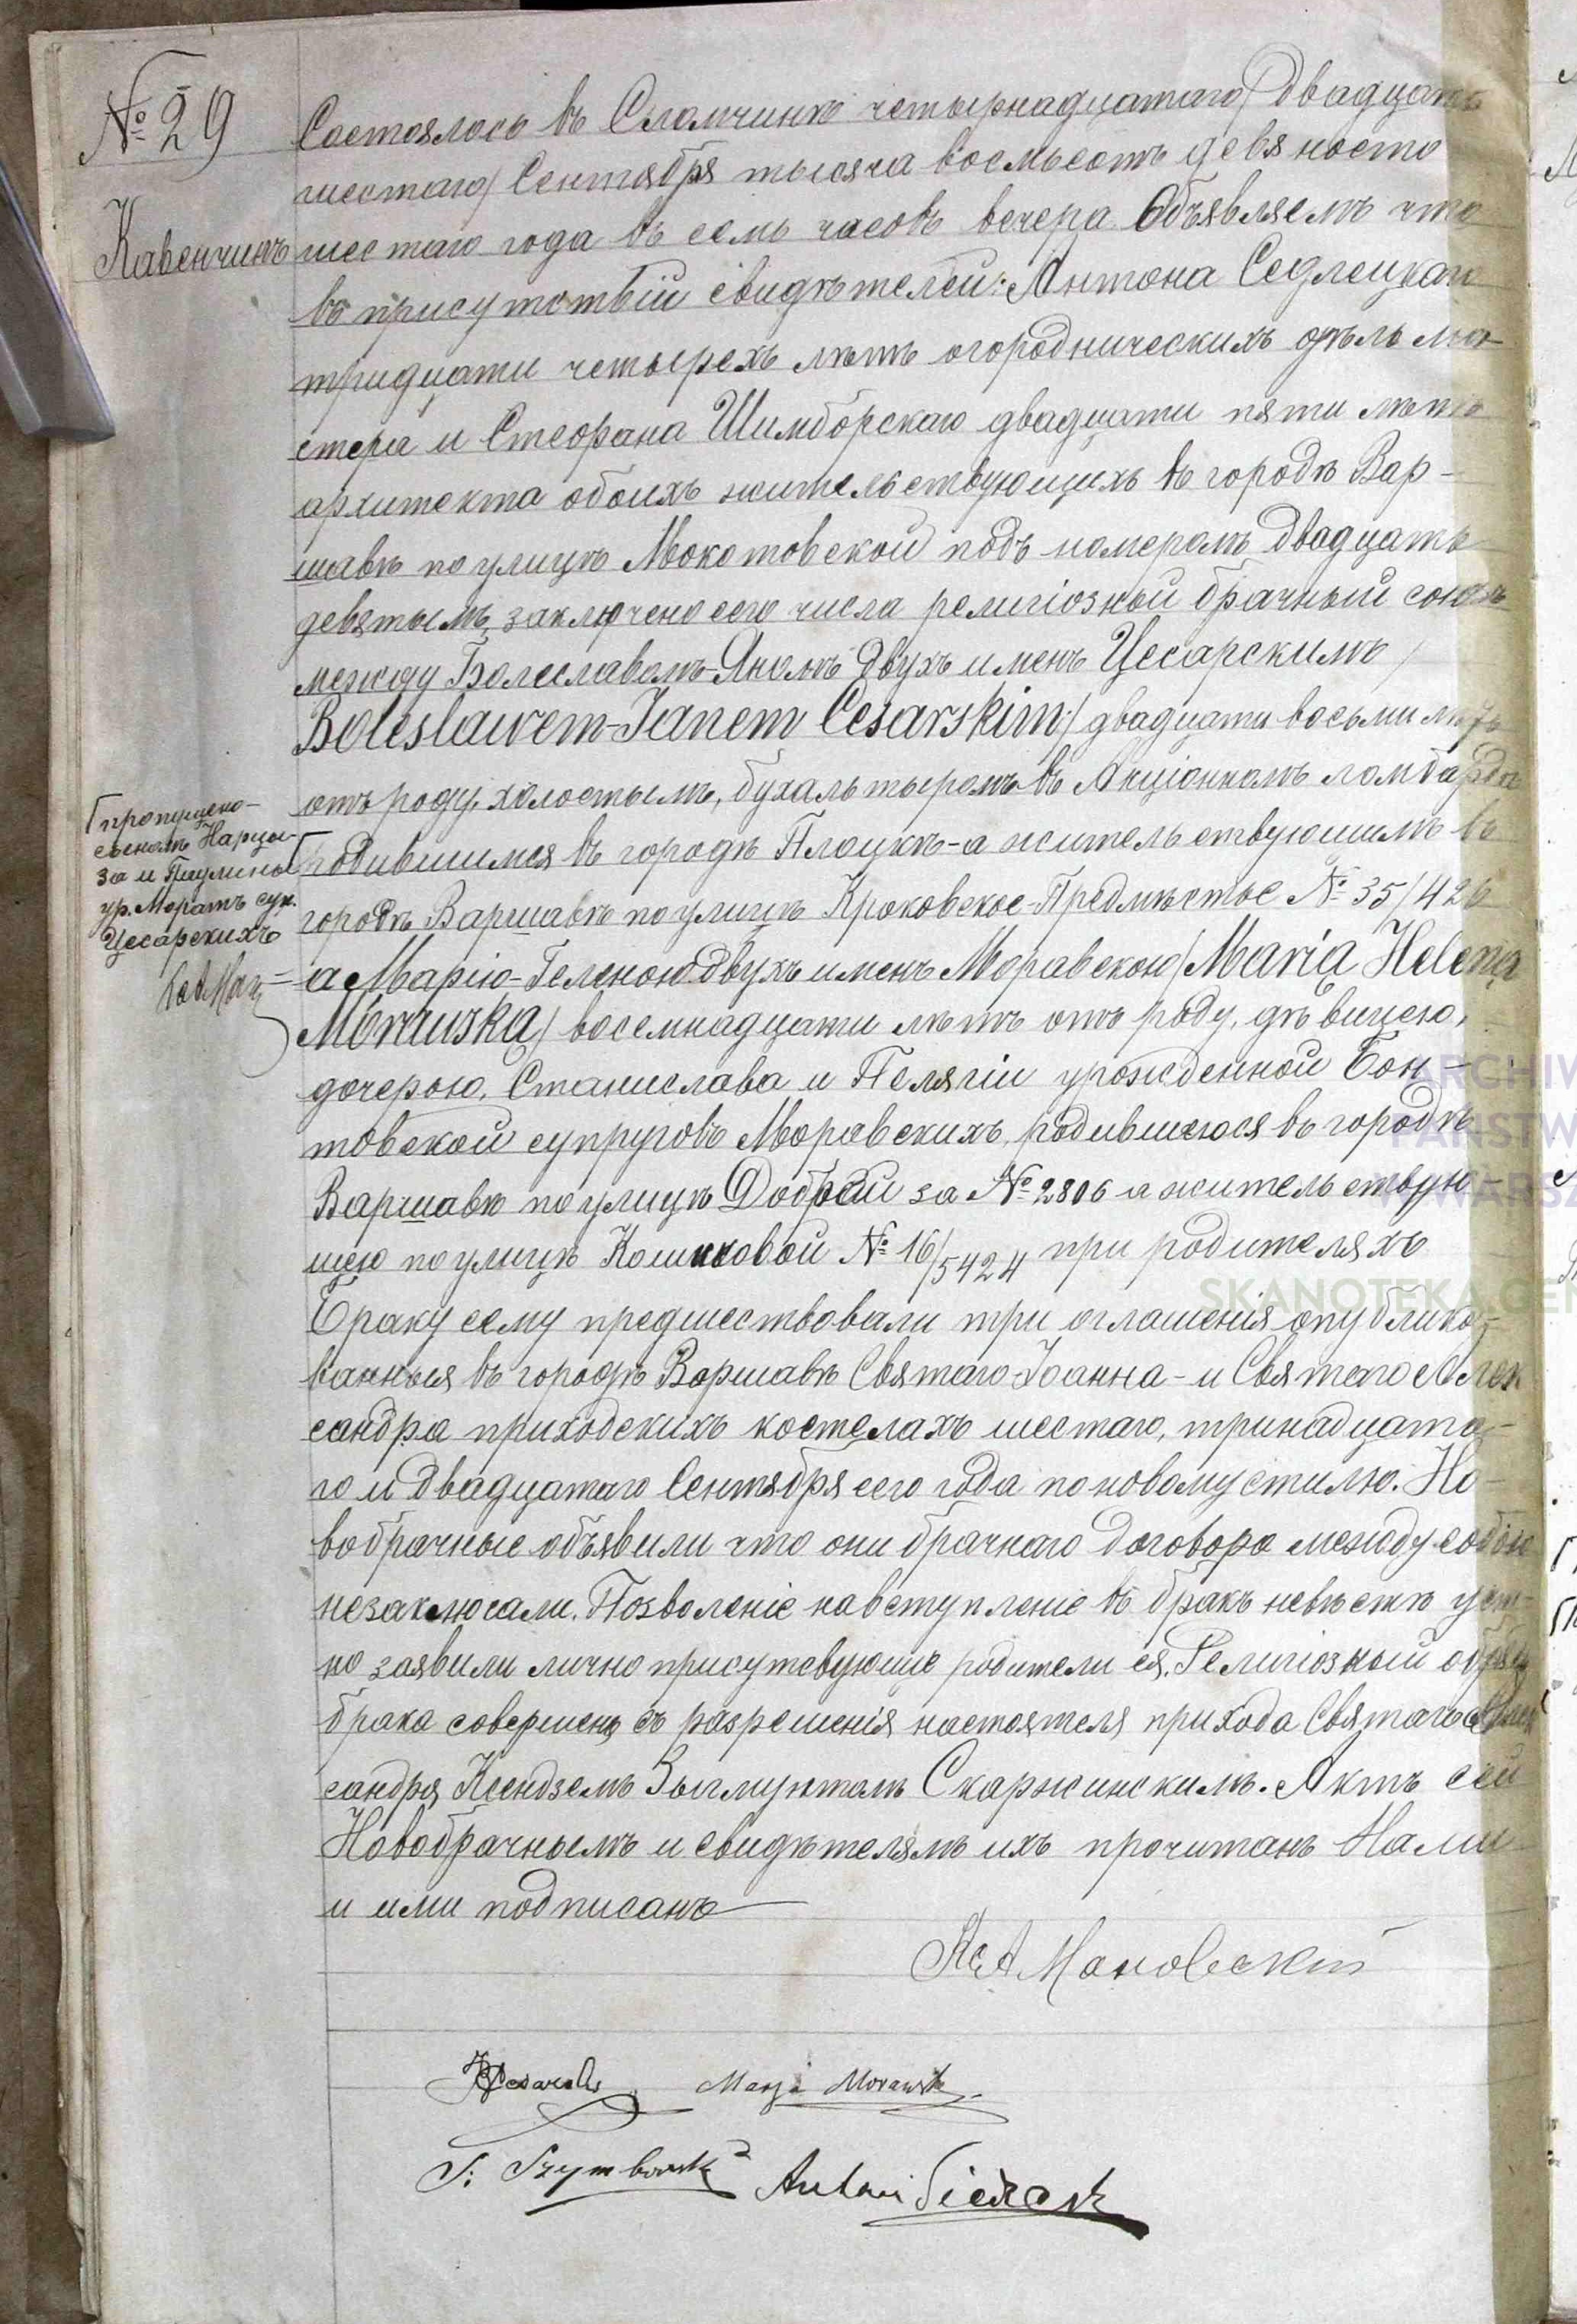 № 29
Кавенчинъ
Состоялось въ Сломчинѣ четырнадцатаго / двадцать
шестаго / Сентября тысяча восемьсотъ девяносто
шестаго года въ семь часовъ вечера. Объявляемъ что
въ присутствіи свидѣтелей: Антона Седлецкаго
тридцати четырехъ лѣтъ огородническихъ дѣлъ ма-
стера и Стефана Шимборскаго двадцати пяти лѣтъ
архитекта обоихъ жительствующихъ въ городѣ Вар-
шавѣ по улицѣ Мокотовской подъ номеромъ двадцать
девятымъ, заключено сего числа религіозный брачный союзъ
между Болеславомъ-Яномъ двухъ именъ Цесарскимъ /
Boleslawem-Janem Cesarskim / двадцати восьми лѣтъ
отъ роду, холостымъ, бухальтыромъ въ Акціонномъ ломбардѣ
Гпропущено-
сыномъ Нарци-
за и Паулины
ур. Моратъ суп.
Цесарскихъ
Г родившимся въ городѣ Плоцкѣ-а жительствующимъ въ
городѣ Варшавѣ по улицѣ Краковское-Предмѣстье № 35/426
а Марію-Геленою двухъ именъ Моравскою / Maria Helena
Morawska / восемнадцати лѣтъ отъ роду, дѣвицею,
дочерью, Станислава и Пелягіи урожденной Бон-
товской супруговъ Моравскихъ, родившеюся въ городѣ
Варшавѣ по улицѣ Доброй за № 2806 а жительствую-
щею по улицѣ Кошиковой № 16/5424 при родителяхъ
Браку сему предшествовали три оглашенія опублико-
ванныя въ городѣ Варшавѣ Святаго-Іоанна-и Святаго Алек
сандра приходскихъ костелахъ шестаго, тринадцата-
го и двадцатаго Сентября сего года по новому стилю. Но-
вобрачные объявили что они брачнаго договора между собою
незаключали. Позволеніе на вступленіе въ бракъ невѣстѣ уст-
но заявили лично присутсвующіе родители ея. Религіозный обрядъ
брака совершенъ съ разрешенія настоятеля прихода Святаго Алек
сандра Ксендземъ Зыгмунтомъ Скаржинскимъ. Актъ сей
Новобрачнымъ и свидѣтелямъ ихъ прочитанъ Нами
и ими подписанъ
Кс А Мановскій
Marja Morawska
S. Szymborski Antoni Siedlecki
ARCHIW
PAŃSTW
WARSZ
SKANOTEKA.GEN